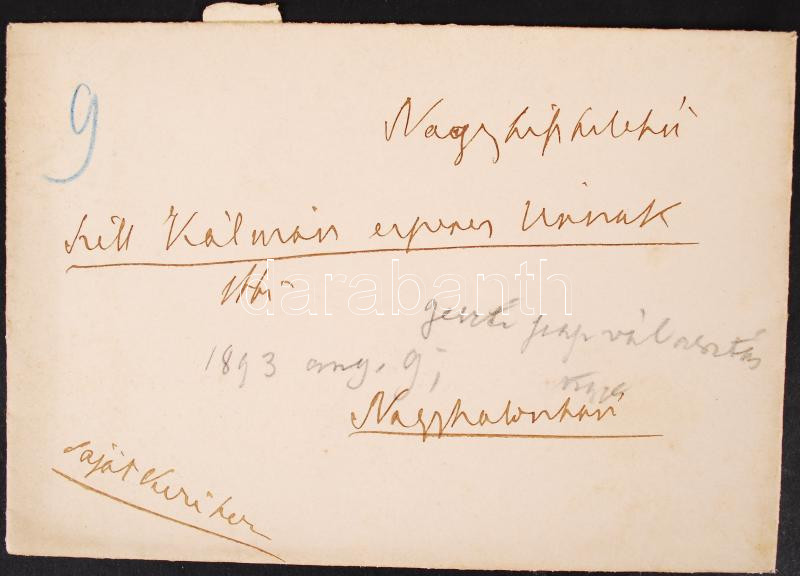 9
Nagytiszteletű
Széll Kálmán esperes Úrnak
stb
darabanth
geszti papválasztás
1893 aug. 9;
Nagyszalontán
Saját kezéhez